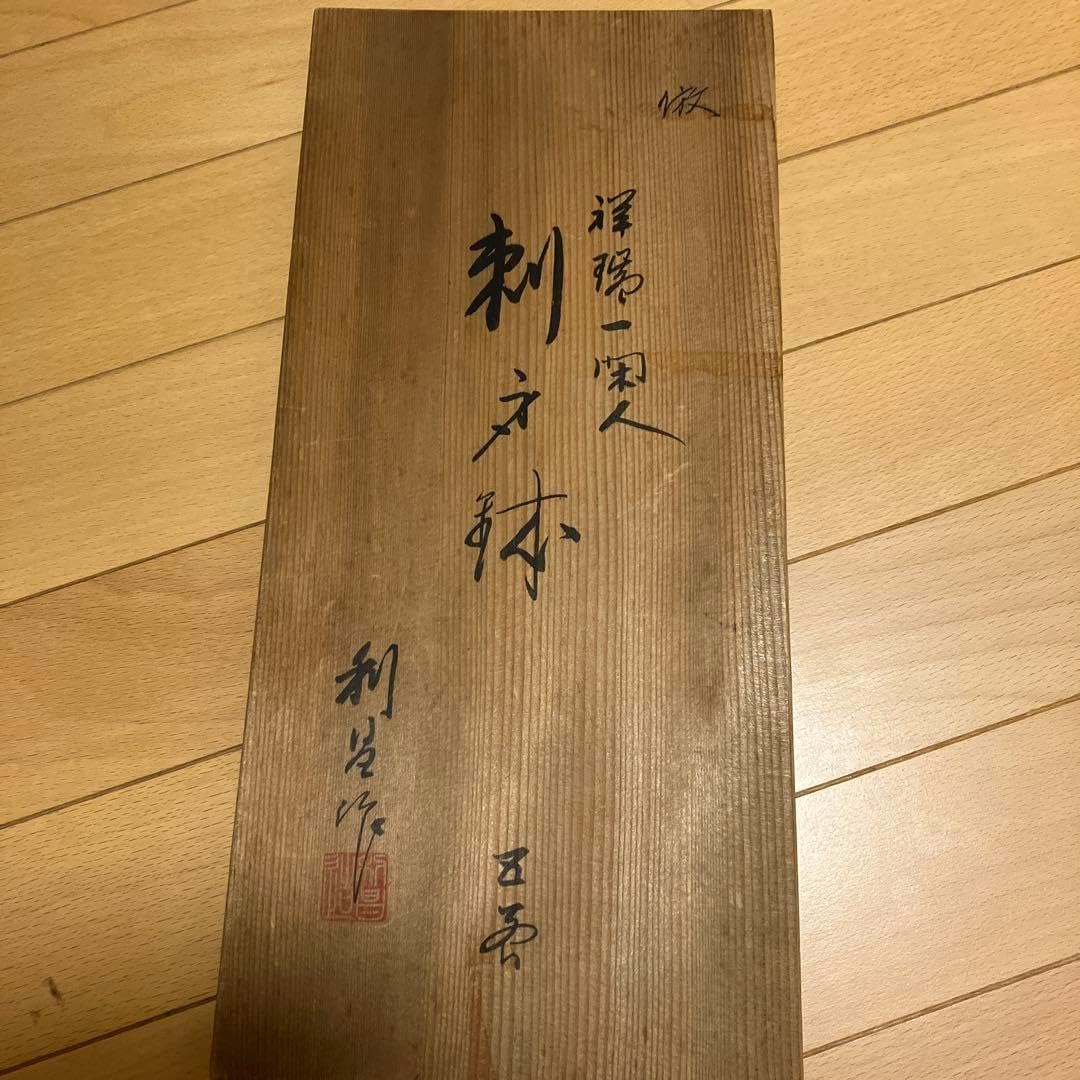 倣
祥瑞一閑人
刺身鉢
五客
利昌作